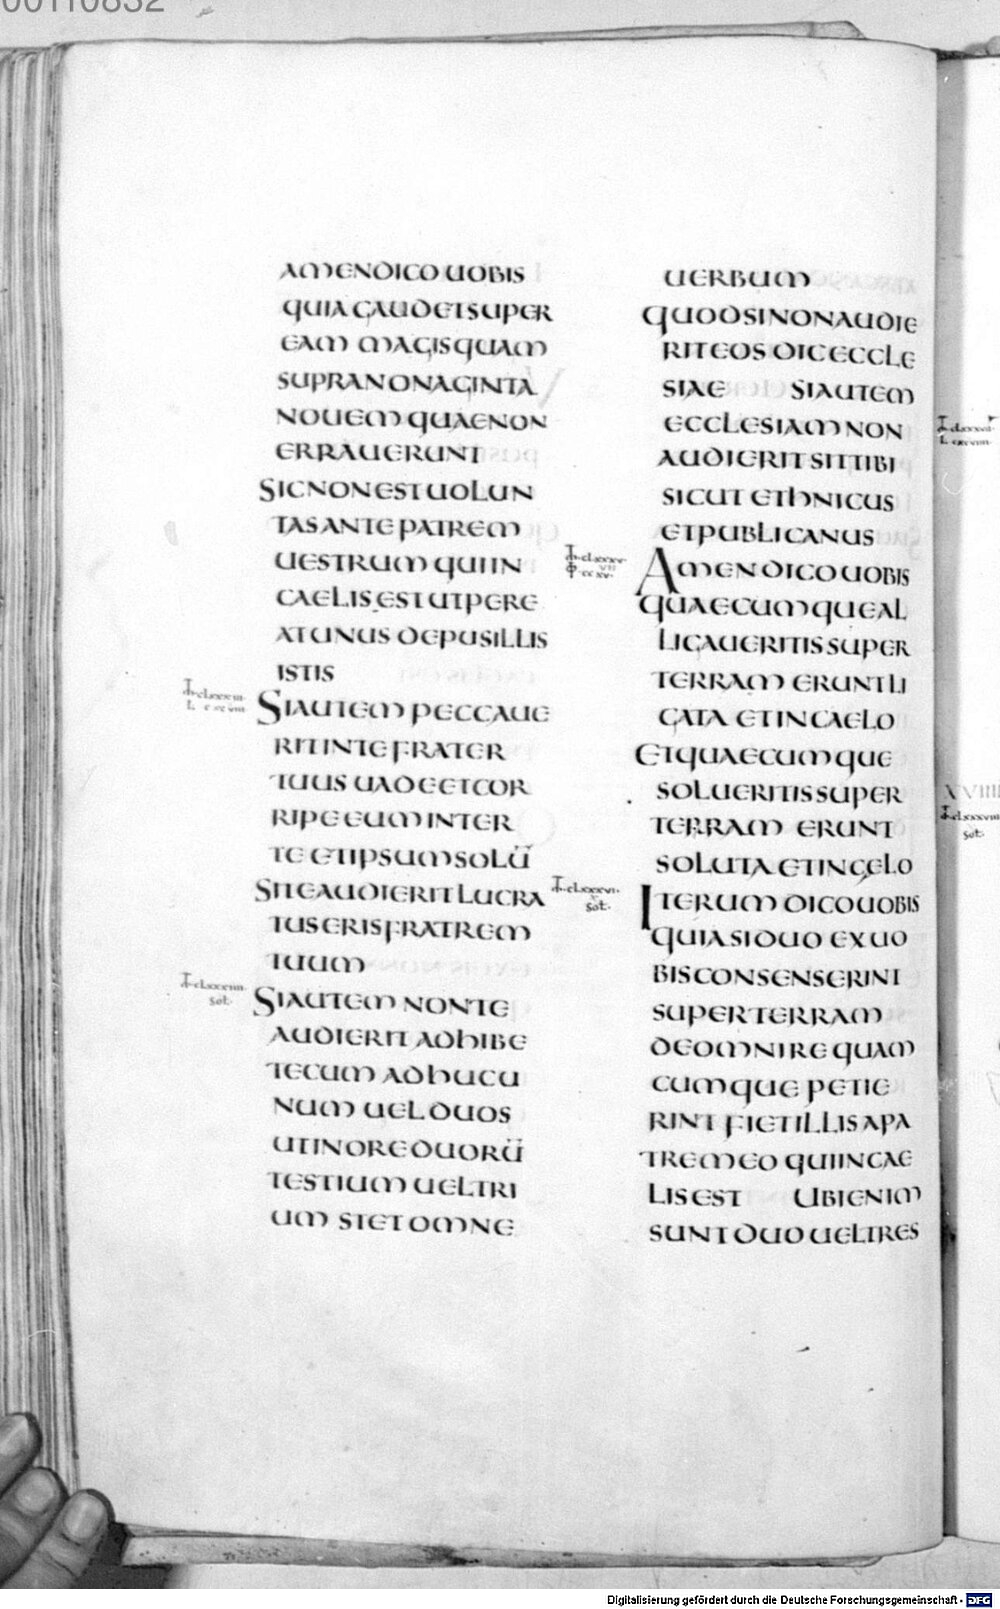 00110832
AMENDICO UOBIS
QUIA GAUDET SUPER
EAM MAGIS QUAM
SUPRA NONAGINTA
NOUEM QUAE NON
ERRAUERUNT
SIC NON EST UOLUN
TAS ANTE PATREM
UESTRUM QUI IN
CAELIS EST UT PERE
AT UNUS DE PUSILLIS
ISTIS
SI AUTEM PECCAUE
RIT IN TE FRATER
TUUS UADE ET COR
RIPE EUM INTER
TE ET IPSUM SOLŪ
SI TE AUDIERIT LUCRA
TUS ERIS FRATREM
TUUM
SI AUTEM NON TE
AUDIERIT ADHIBE
TECUM ADHUC U
NUM UEL DUOS
UT IN ORE DUORŪ
TESTIUM UEL TRI
UM STET OMNE
UERBUM
QUOD SI NON AUDIE
RIT EOS DIC ECCLE
SIAE SI AUTEM
ECCLESIAM NON
AUDIERIT SIT TIBI
SICUT ETHNICUS
ET PUBLICANUS
AMEN DICO UOBIS
QUAECUMQUE AL
LIGAUERITIS SUPER
TERRAM ERUNT LI
GATA ET IN CAELO
ET QUAECUMQUE
SOLUERITIS SUPER
TERRAM ERUNT
SOLUTA ET IN CELO
ITERUM DICO UOBIS
QUIA SI DUO EX UO
BIS CONSENSERINT
SUPER TERRAM
DE OMNI RE QUAM
CUMQUE PETIE
RINT FIET ILLIS A PA
TRE MEO QUI IN CAE
LIS EST UBI ENIM
SUNT DUO UEL TRES
Digitalisierung gefördert durch die Deutsche Forschungsgemeinschaft - DFG